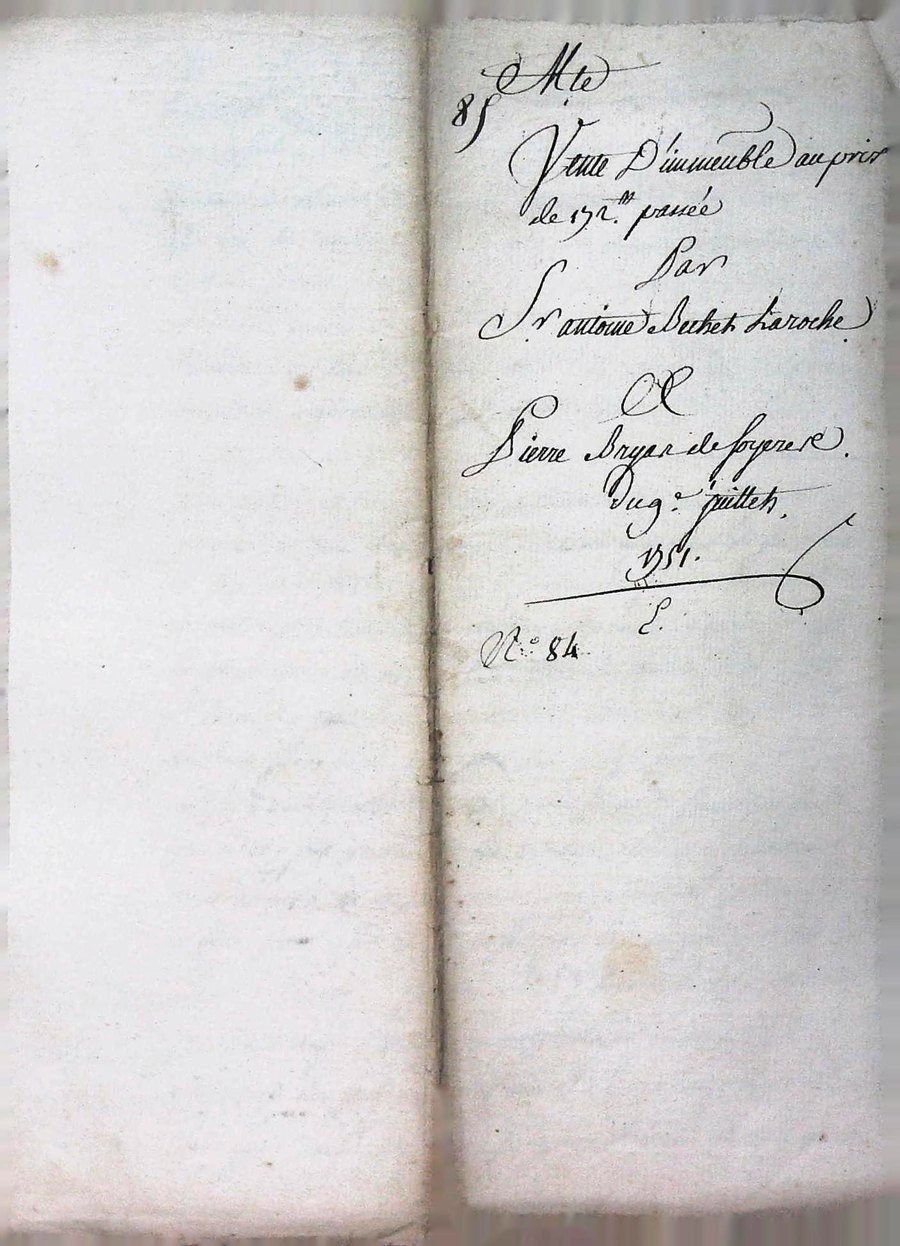 Mte
85
Vente D'immeuble au prix
de 172.ᵗᵗ passée
Par
S.r antoine Bechet Laroche.
A
Pierre de
Du 9.e juillet.
1751.
N.o 84